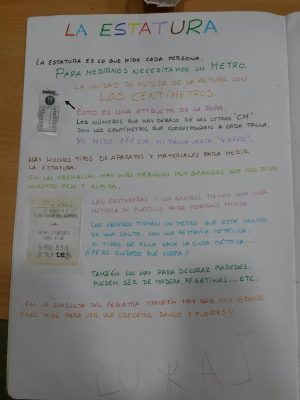 LA ESTATURA
LA ESTATURA ES LO QUE MIDE CADA PERSONA.
PARA MEDIRNOS NECESITAMOS UN METRO.
LA UNIDAD DE MEDIDA DE LA ALTURA SON
LOS CENTÍMETROS.
ESTO ES UNA ETIQUETA DE LA ROPA.
LOS NÚMEROS QUE HAY DEBAJO DE LAS LETRAS "CM"
SON LOS CENTÍMETROS QUE CORRESPONDEN A CADA TALLA.
YO MIDO CM, MI TALLA SERÍA "4 AÑOS".
HAY MUCHOS TIPOS DE APARATOS Y MATERIALES PARA MEDIR
LA ESTATURA.
EN LAS FARMACIAS HAY UNAS MÁQUINAS MUY GRANDES QUE NOS DICEN
NUESTRO PESO Y ALTURA.
LAS COSTURERAS Y LOS SASTRES TIENEN UNA CINTA
MÉTRICA DE PLÁSTICO PARA TOMARNOS MEDIDA.
LOS OBREROS TIENEN UN METRO QUE ESTÁ DENTRO
DE UNA CAJITA, CON UNA PESTAÑA METÁLICA,
SI TIRAS DE ELLA SALE LA CINTA MÉTRICA...
¡¡PERO CUIDADO QUE CORTA!!
TAMBIÉN LOS HAY PARA DECORAR PAREDES,
PUEDEN SER DE MADERA, PEGATINAS... ETC.
EN LA CONSULTA DEL PEDIATRA TAMBIÉN HAY UNO MUY GRANDE.
¡¡NOS MIDE PARA VER QUE CRECEMOS SANOS Y FUERTES!!
LUKAS